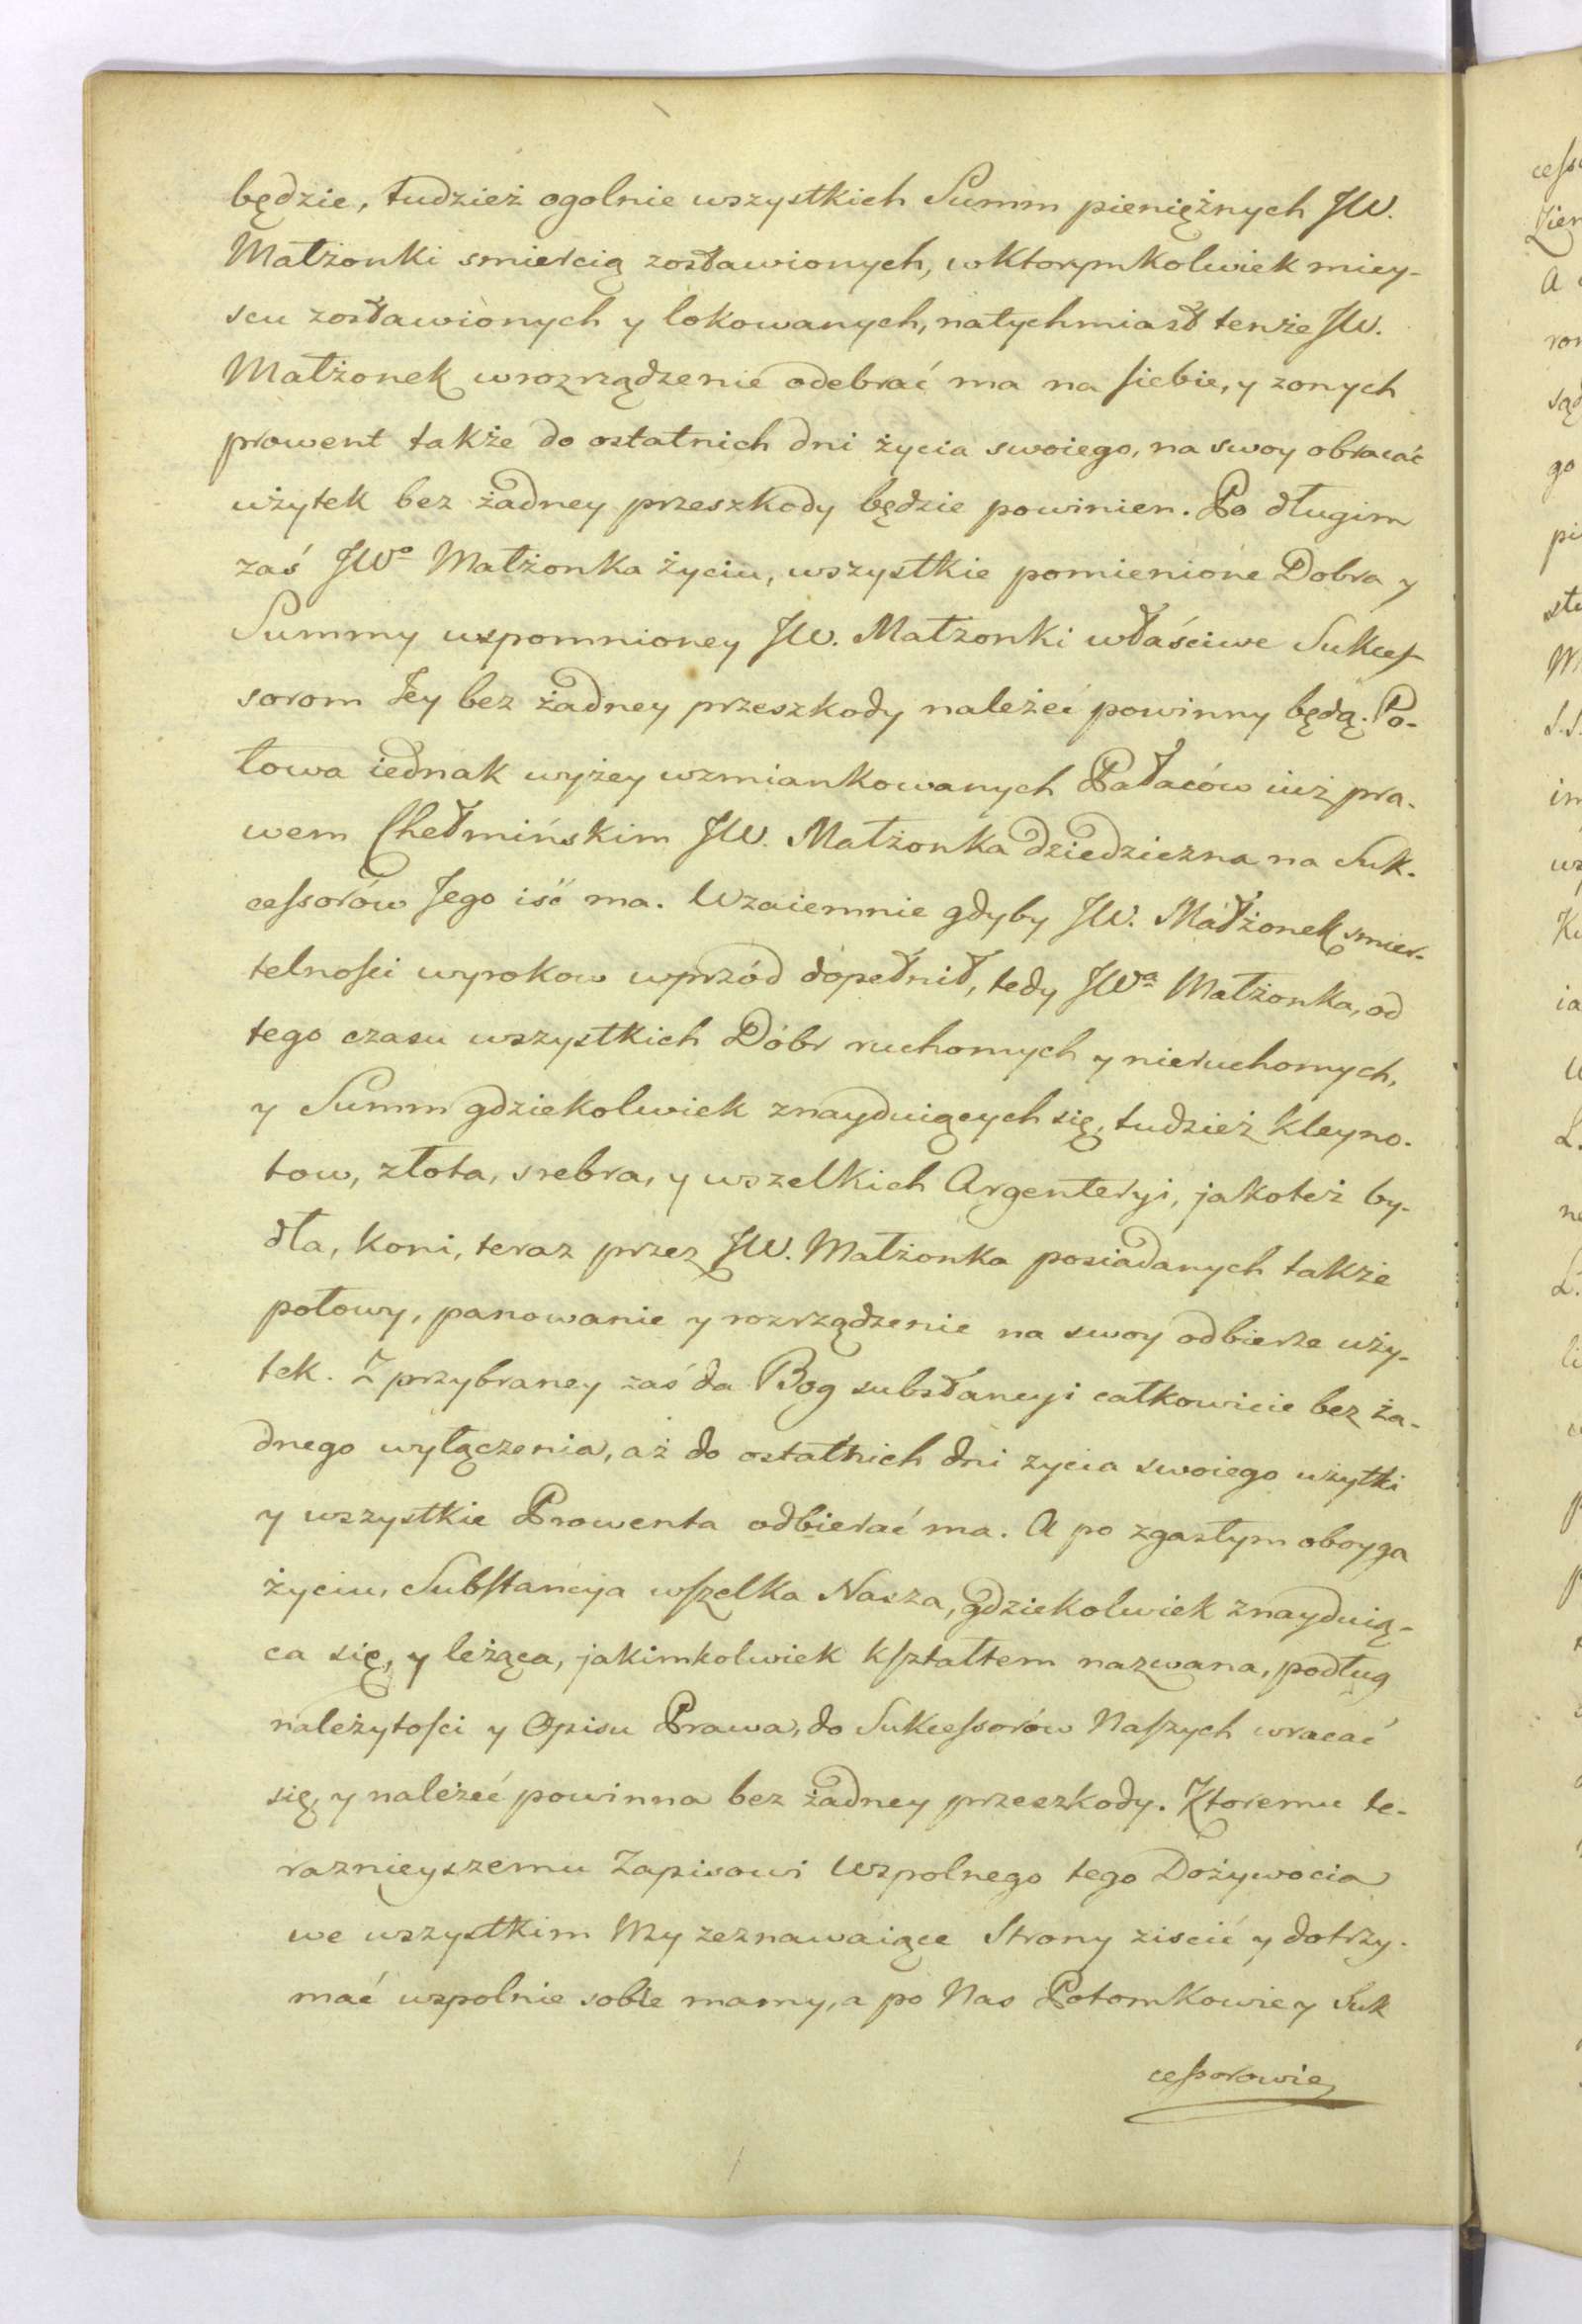 będzie, tudzież ogolnie wszystkich Summ pieniężnych JW.
Małżonki smiercią zostawionych, w ktorymkolwiek miey-
scu zostawionych y lokowanych, natychmiast tenże JW.
Małżonek w rozrządzenie odebrać ma na siebie, y z onych
prowent także do ostatnich dni życia swoiego, na swoy obracać
użytek bez żadney przeszkody będzie powinien. Po długim
zaś JWo Małżonka życiu, wszystkie pomienione Dobra y
Summy wspomnioney JW. Małżonki właściwe Sukces-
sorom Jey bez żadney przeszkody należeć powinny będą. Po-
łowa iednak wyżey wzmiankowanych Pałaców iuż pra-
wem Chełmińskim JW. Małżonka dziedziczna na Suk-
cessorów Jego iść ma. Wzaiemnie gdyby JW. Małżonek smier-
telności wyrokow wprzód dopełnił, tedy JWa Małżonka, od
tego czasu wszystkich Dóbr ruchomych y nieruchomych,
y Summ gdziekolwiek znayduiących się, tudzież kleyno-
tow, złota, srebra, y wszelkich Argenteryi, jakoteż by-
dła, koni, teraz przez JW. Małżonka posiadanych także
połowy, panowanie y rozrządzenie na swoy odbierze uży-
tek. Z przybraney zaś da Bog substancyi całkowicie bez ża-
dnego wyłączenia, aż do ostatnich dni zycia swoiego użytki
y wszystkie Prowenta odbierać ma. A po zgasłym oboyga
życiu, Substancya wszelka Nasza, gdziekolwiek znayduią-
ca się, y leżąca, jakimkolwiek kształtem nazwana, podług
należytości y Opisu Prawa, do Sukcessorów Naszych wracać
się, y należeć powinna bez żadney przeszkody. Ktoremu te-
raznieyszemu Zapisowi Wspolnego tego Dożywocia
we wszystkim My zeznawaiące Strony ziscić y dotrzy-
mać wspolnie sobie mamy, a po Nas Potomkowie y Suk
cessorowie